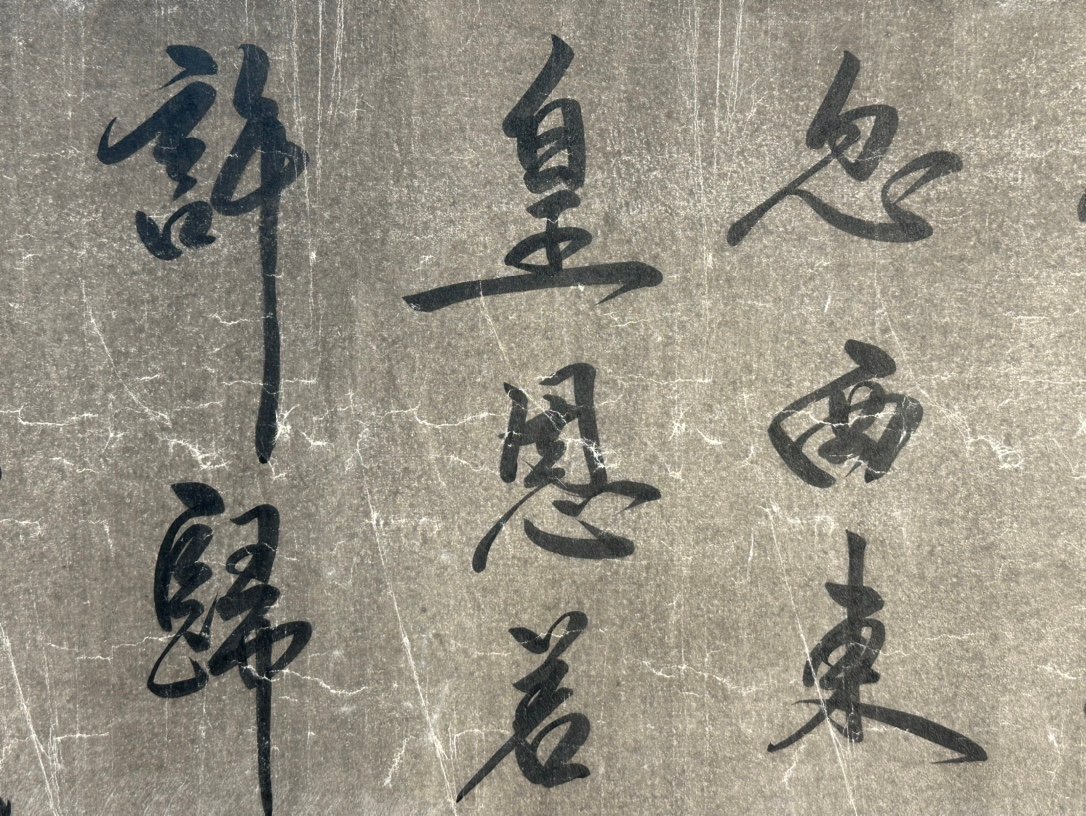 忽西東
皇恩若
許歸